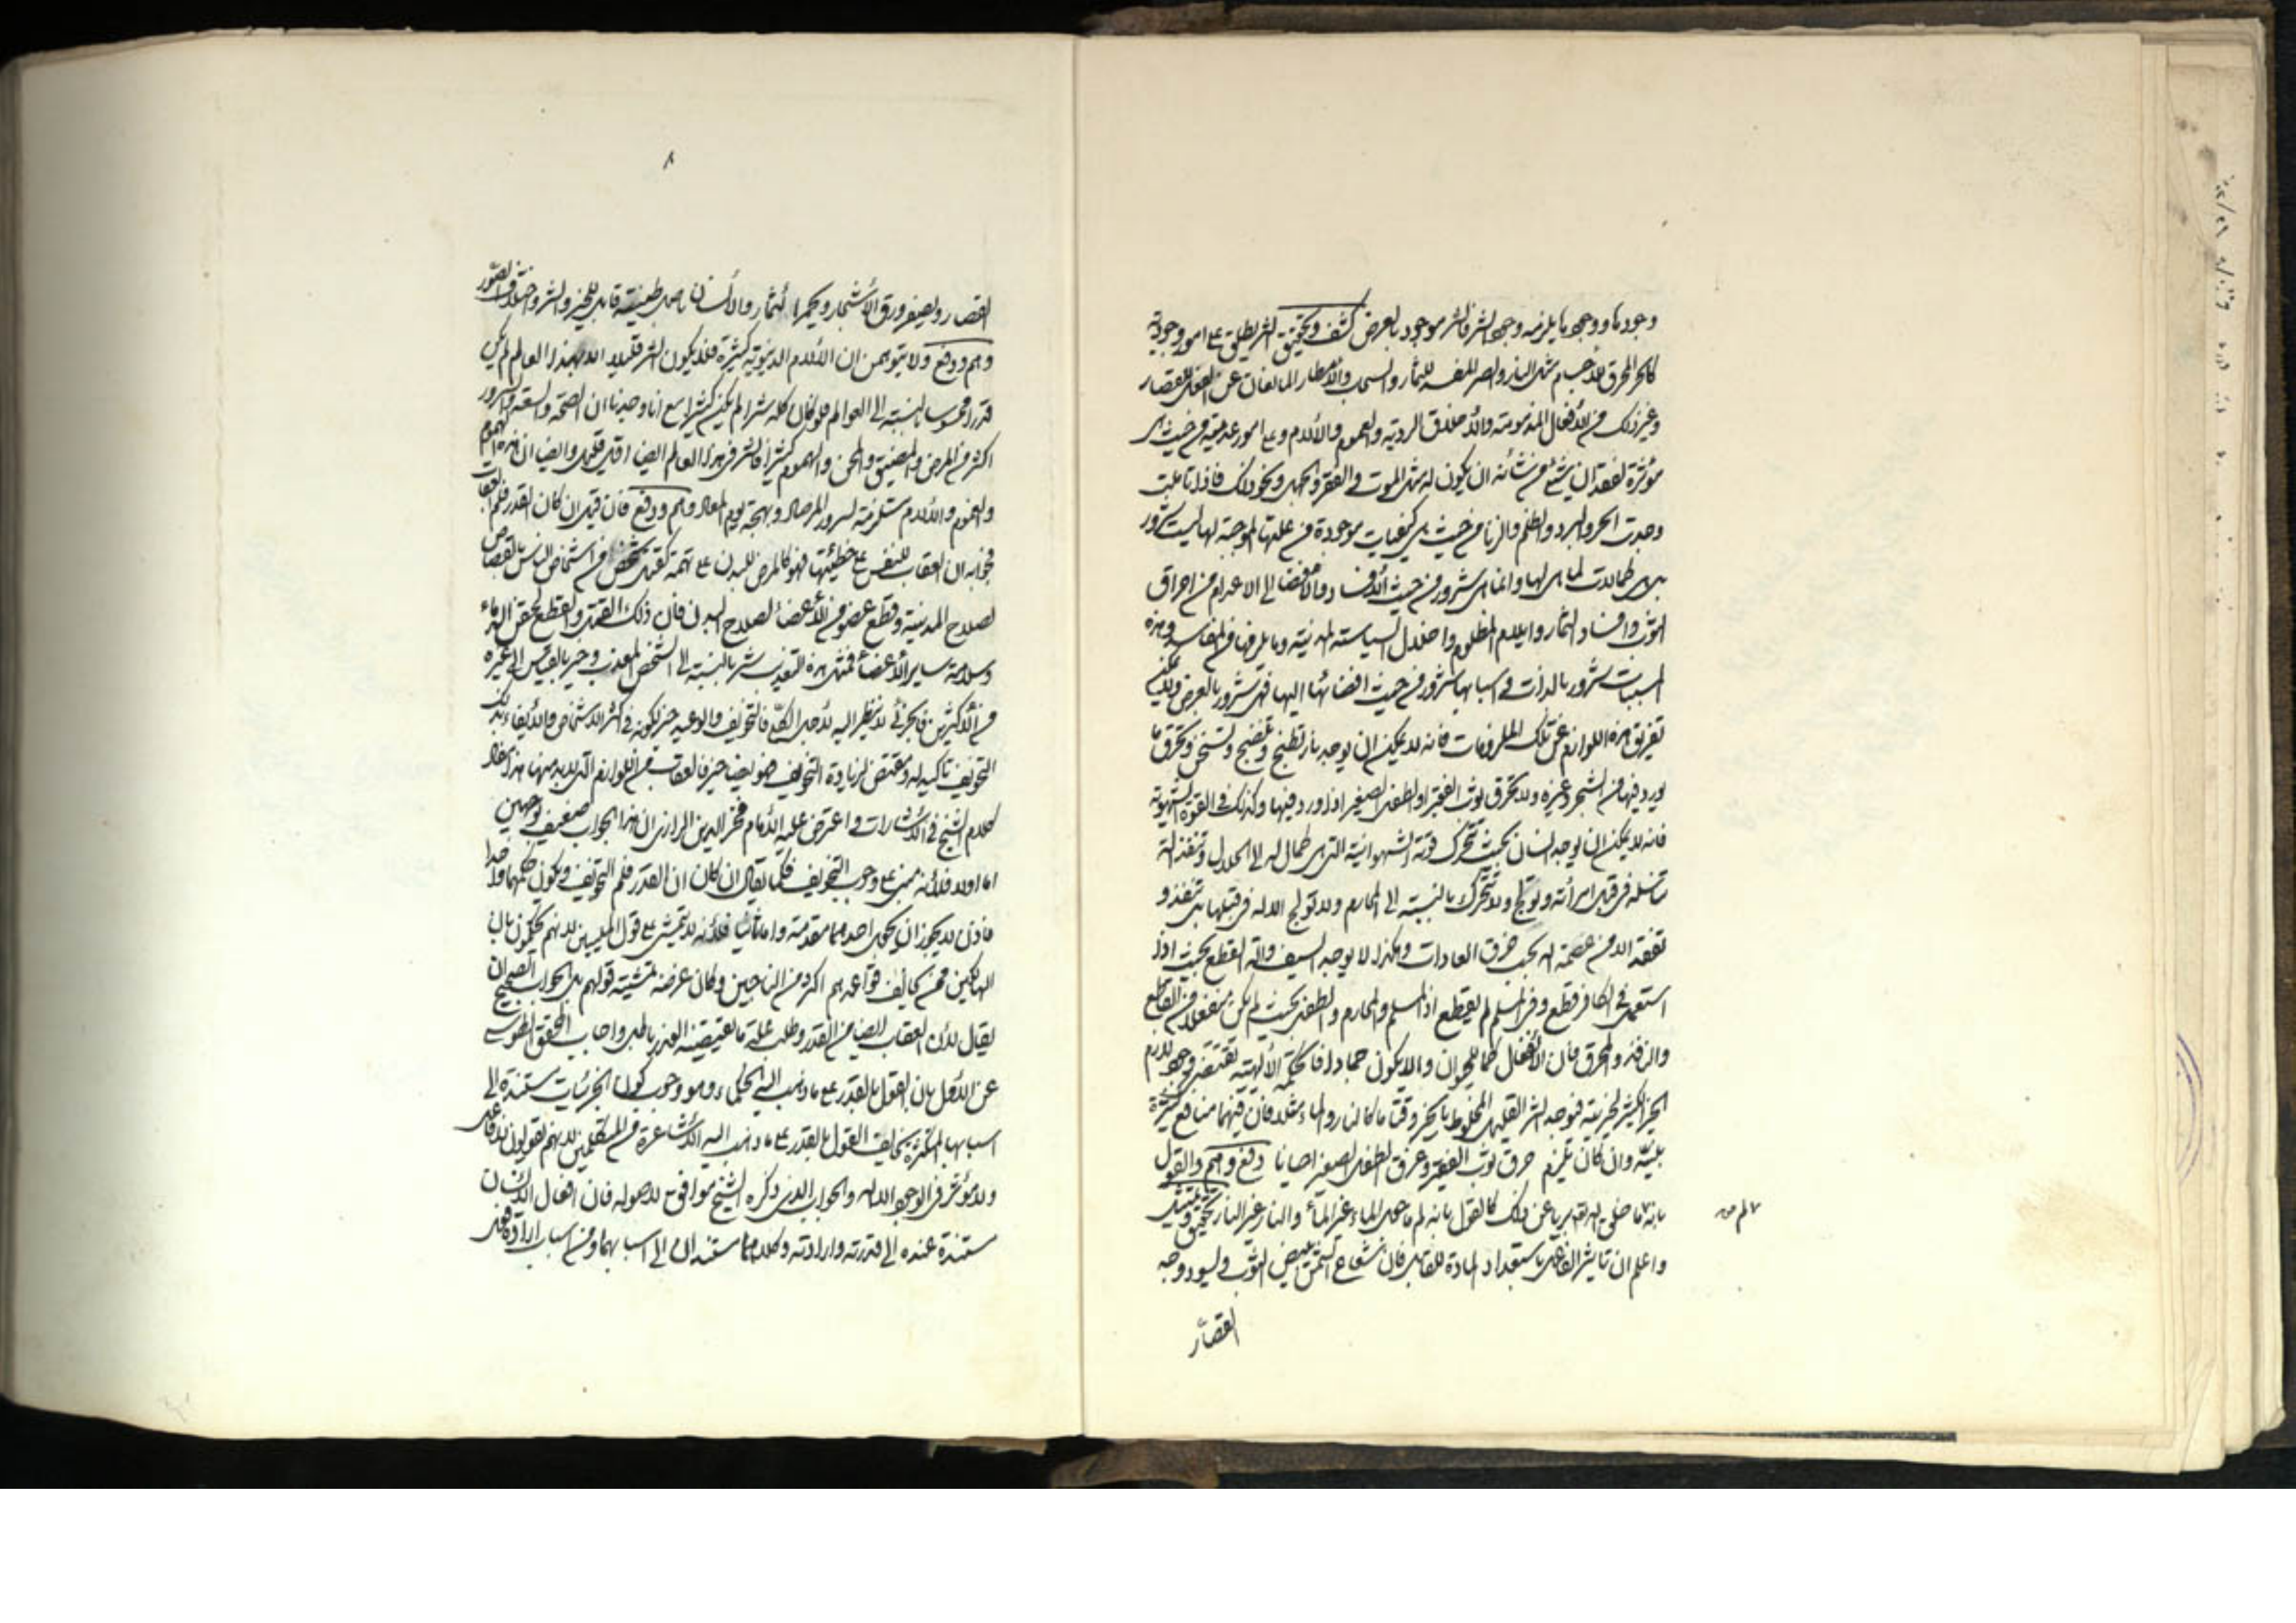 وجودها ووجود ما يلزمه وجود الشر فالشر موجود بالعرض كشف وتحقيق الشر يطلق على امور وجودية
كالحر المحرق للاجسام مثل النار والصر المفسد للثمار والسحب والامطار المانعان عن الفعل للقصار
وغير ذلك من الافعال المذمومة والاخلاق الردية والغموم والالام وعلى امور عدمية من حيث هى
مؤثرة لفقدان شىء من شانه ان يكون له مثل الموت والفقر والجهل ونحو ذلك فاذا تاملت
وجدت الحر والبرد والظلم والزنا من حيث هى كيفيات موجودة من علتها الموجبة لها ليست شرور
بل هى كمالات لما هى لها وانما هى شرور من حيث الافساد والافضا الى الاعدام من احراق
الثوب وافساد الثمار وايلام المظلوم واختلال السياسة المدنية وما يلزمها من المفاسد وهذه
المسببات شرور بالذات واسبابها شرور من حيث افضائها اليها فهى شرور بالعرض ولا يمكن
تفريق هذه اللوازم عن تلك الملزومات فانه لا يمكن ان يوجد نار تطبخ وتنضج وتسخن وتحرق ما
يورد فيها من الشجر وغيره ولا تحرق ثوب الفقير او الطفل الصغير اذا ورد فيها وكذلك فى القوة الشهوية
فانه لا يمكن ان يوجد انسان بحيث تتحرك قوته الشهوانية التى هى كمال له الى الحلال وتنفذ آلة
تناسله فى قبل امرأته وتولج ولا تتحرك بالنسبة الى المحارم ولا تولج الاله فى قبلها بل تنفذ و
تفقد الا من عصمة اله بحسب خرق العادات وهكذا لا يوجد السيف وآلة القطع بحيث اذا
استعمل فى الكافر قطع وفى المسلم لم يقطع اذا المسلم والمحارم والطفل بحيث لم يكن منفعلا من القاطع
والنافذ والمحرق فان الانفعال كما للحيوان والا يكون جمادا فالحكمة الالهية تقتضى وجود لازم
الخير الكثير لخيريته فيوجد الشر القليل المخلوط بالخير وقتا ما كالنار والماء مثلا فان فيهما منافع كثيرة
بينة وان كان يلزم حرق ثوب الفقير وغرق الطفل الصغير احيانا دفع وهم والقول
بانه ما خلق الله بريا عن ذلك كالقول بانه لم ما جعل الماء غير الماء والنار غير النار تحقيق وتثبيت
واعلم ان تاثير الفاعل باستعداد المادة للقابل فان شعاع الشمس يبيض الثوب ويسود وجه
القصار
القصار ويصفر ورق الاشجار ويحمر الثمار والانسان باصل طينته قابل للخير والشر واختلاف الصور
وهم ودفع ولا يتوهمن ان الالام الدنيوية كثيرة فلا يكون الشر قليلا اذ لهذا العالم لم يكن
قدرا محسوسا بالنسبة الى العوالم فلو كان كله شرا لم يكن كثيرا مع انا وجدنا ان الصحة والسعة والسرور
اكثر من المرض والمضيق والحزن والهموم كثيرا فالشر فى هذا العالم ايضا اقل قليل وايضا ان هذه الهموم
والغموم والالام مستلزمة لسرور المرصاد وبهجة يوم المعاد وهم ودفع فان قيل ان كان القدر فلم العقاب
فجوابه ان العقاب للنفس على خطيئتها فهو كالمرض للبدن على نهمه كقتل شخص من اشخاص الناس بالقصاص
لصلاح المدينة وقطع عضو من الاعضا لصلاح البدن فان ذلك القتل والقطع لحقن الدماء
وسلامة ساير الاعضا فمثل هذه التعذيب شر بالنسبة الى الشخص المعذب وخير بالقياس الى غيره
من الاكثرين فالجزئى لا ينظر اليه لاجل الكل فالتخويف والوعيد خير لكونه فى اكثر الاشخاص والايفاء بذلك
التخويف تاكيد له ومقتض لزيادة التخويف فهو ايضا خير فالعقاب من اللوازم التى لا بد منها هذا مفاد
كلام الشيخ فى الاشارات واعترض عليه الامام فخر الدين الرازى ان هذا الجواب ضعيف لوجهين
اما اولا فلانه مبنى على وجوب التخويف فكما يقال ان كان القدر فلم التخويف ويكون حكمهما واحدا
فاذن لا يجوز ان يجعل احدهما مقدمة واما ثانيا فلانه لا يتمشى على قول المليين لانهم يحكمون بان
الهالكين ممن يخالف قواعدهم اكثر من الناجين وكان غرضه تمشية قولهم بل الجواب الصحيح ان
يقال لان العقاب ايضا من القدر وطلب علة ما يقتضيه القدر باطل واجاب المحقق الطوسى
عن الاول بان القول بالقدر على ما ذهب اليه الحكماء وهو وجوب كون الجزئيات مستندة الى
اسبابها المتكثرة يخالف القول بالقدر على ما ذهب اليه الاشاعرة من المتكلمين لانهم يقولون لا فاعل
ولا مؤثر فى الوجود الا الله والجواب الذى ذكره الشيخ موافق لاصوله فان افعال الانسان
مستندة عنده الى قدرته وارادته وكلاهما مستندان الى اسبابهما ومن اسباب ارادة فعل